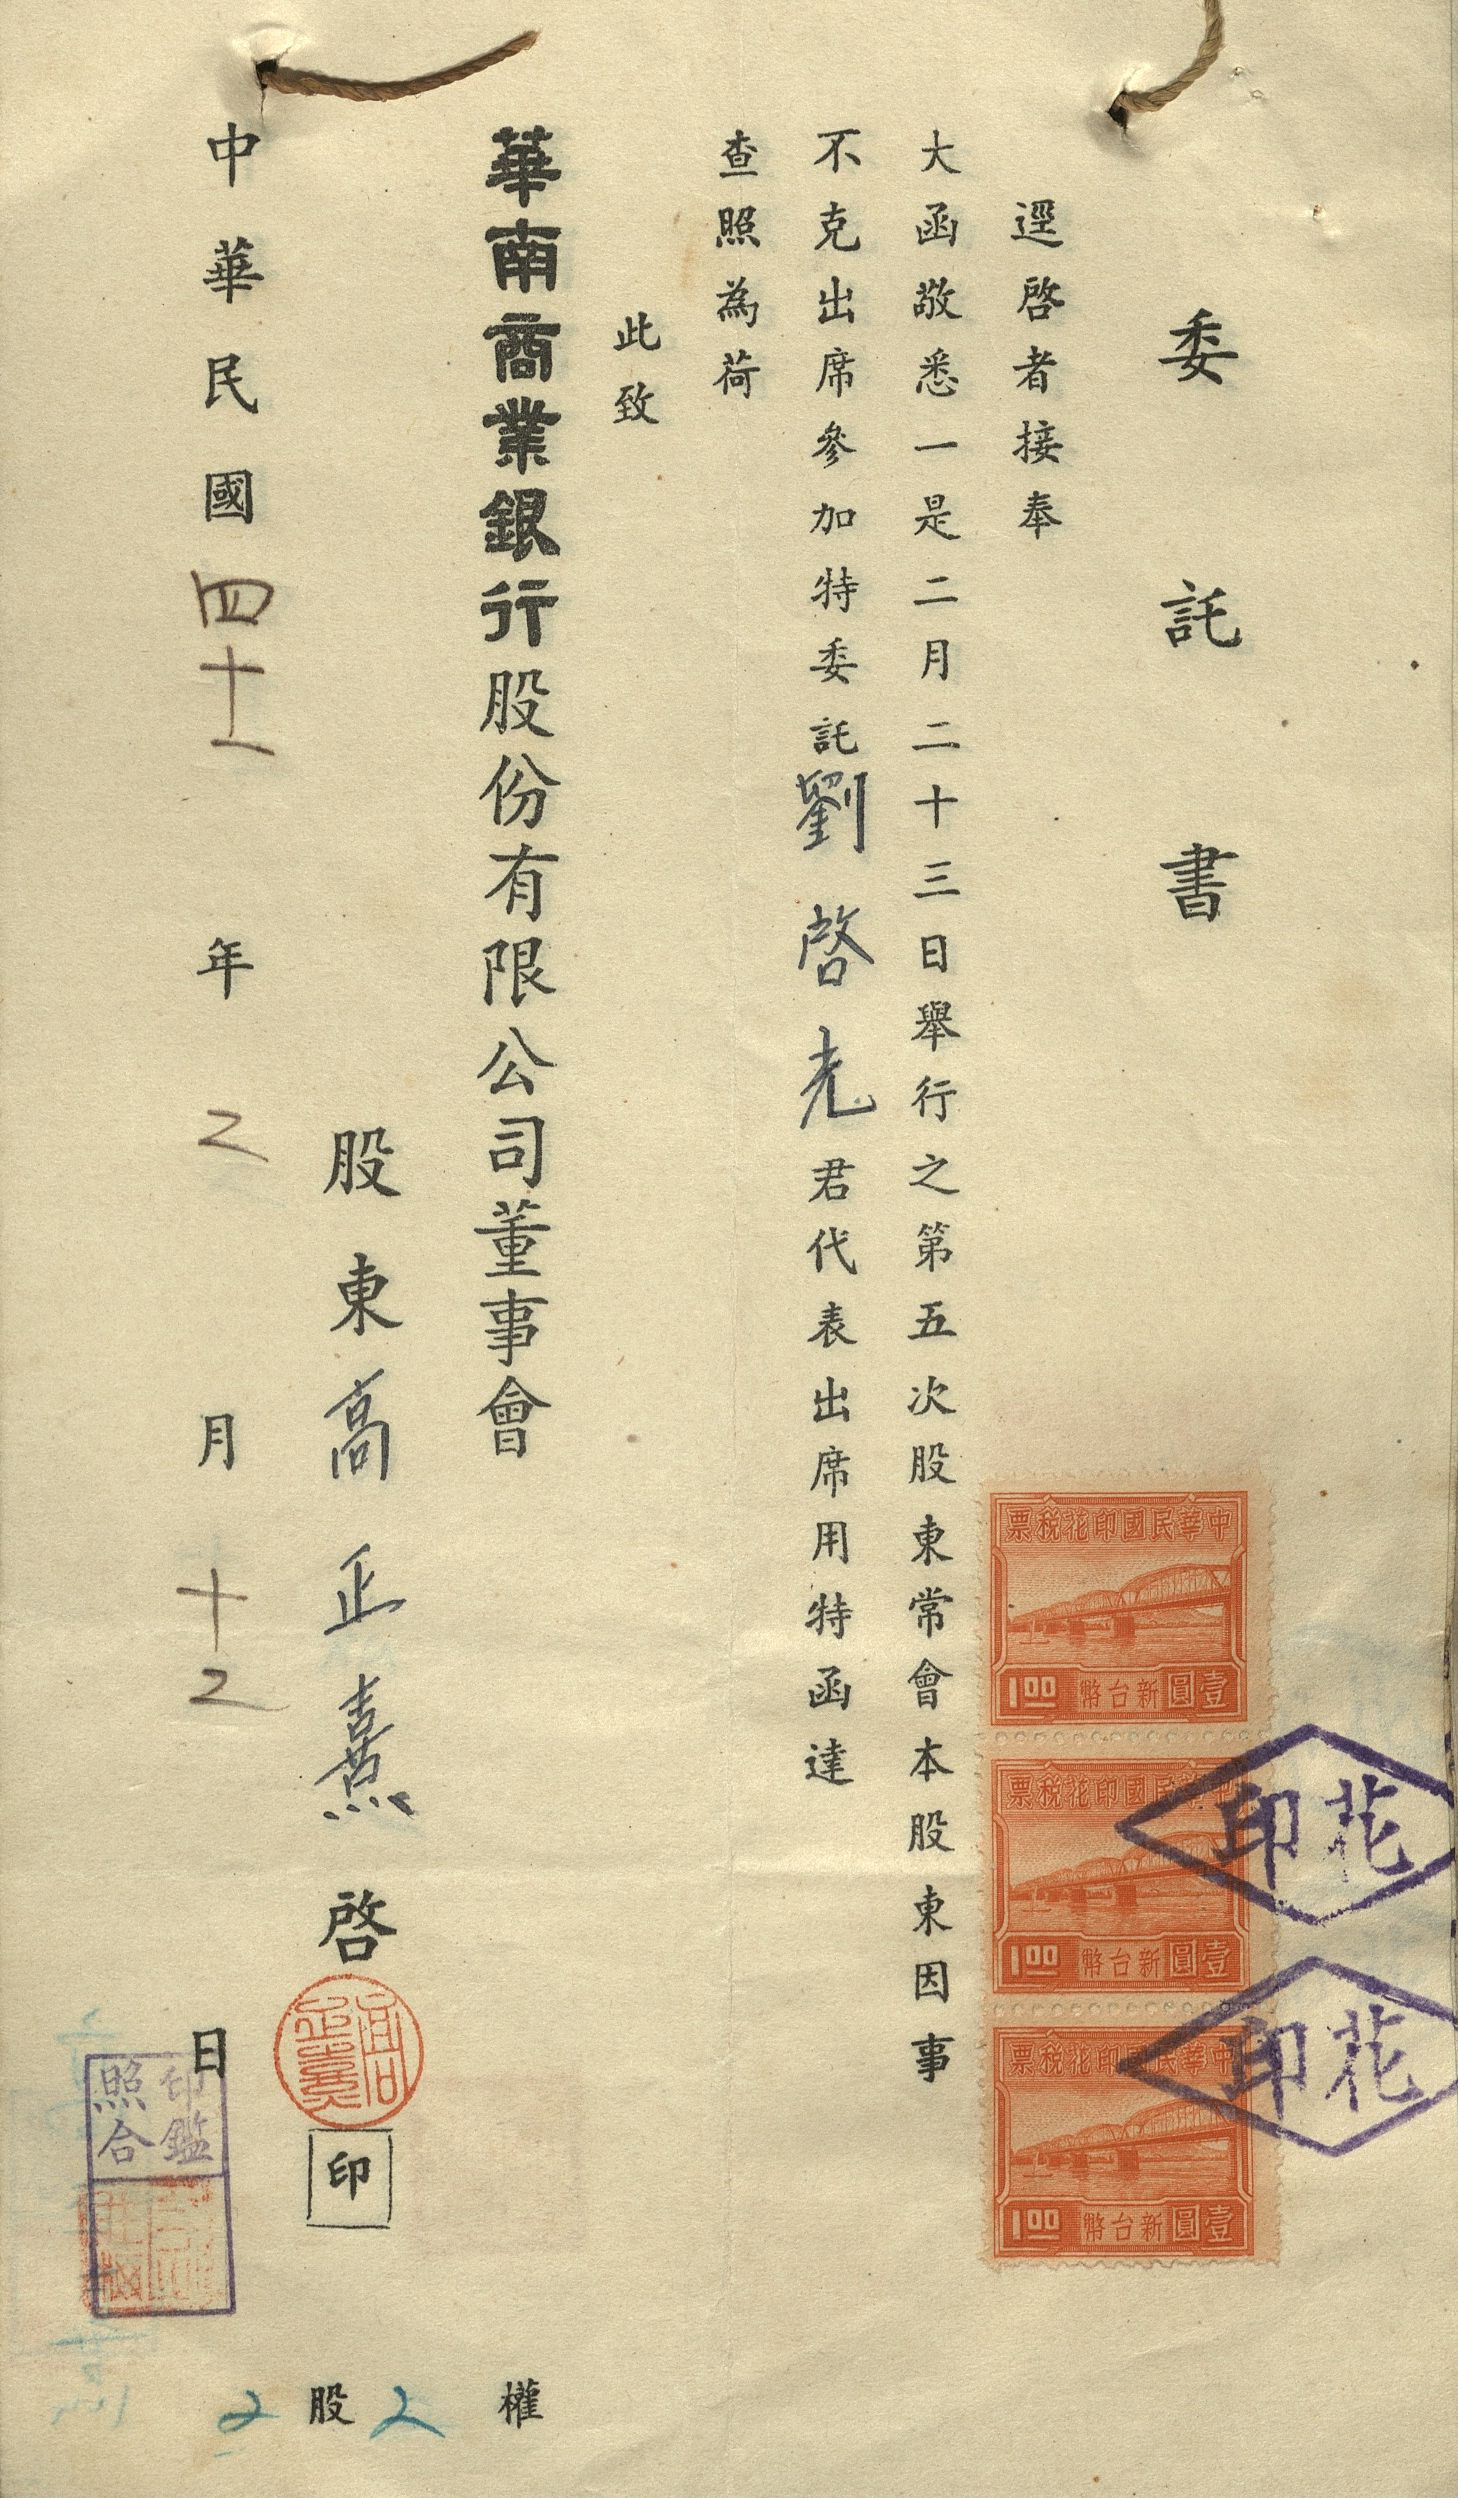 委託書
逕啓者接奉
大函敬悉一是二月二十三日舉行之第五次股東常會本股東因事
不克出席參加特委託劉啓光君代表出席用特函達
查照為荷
此致
華南商業銀行股份有限公司董事會
股東高正熹啓
印
中華民國四十一年2月十2日
權
2股
2
中華民國印花稅票
1.00 新台幣壹圓
中華民國印花稅票
1.00 新台幣壹圓
中華民國印花稅票
1.00 新台幣壹圓
印花
印花
印鑑
照合